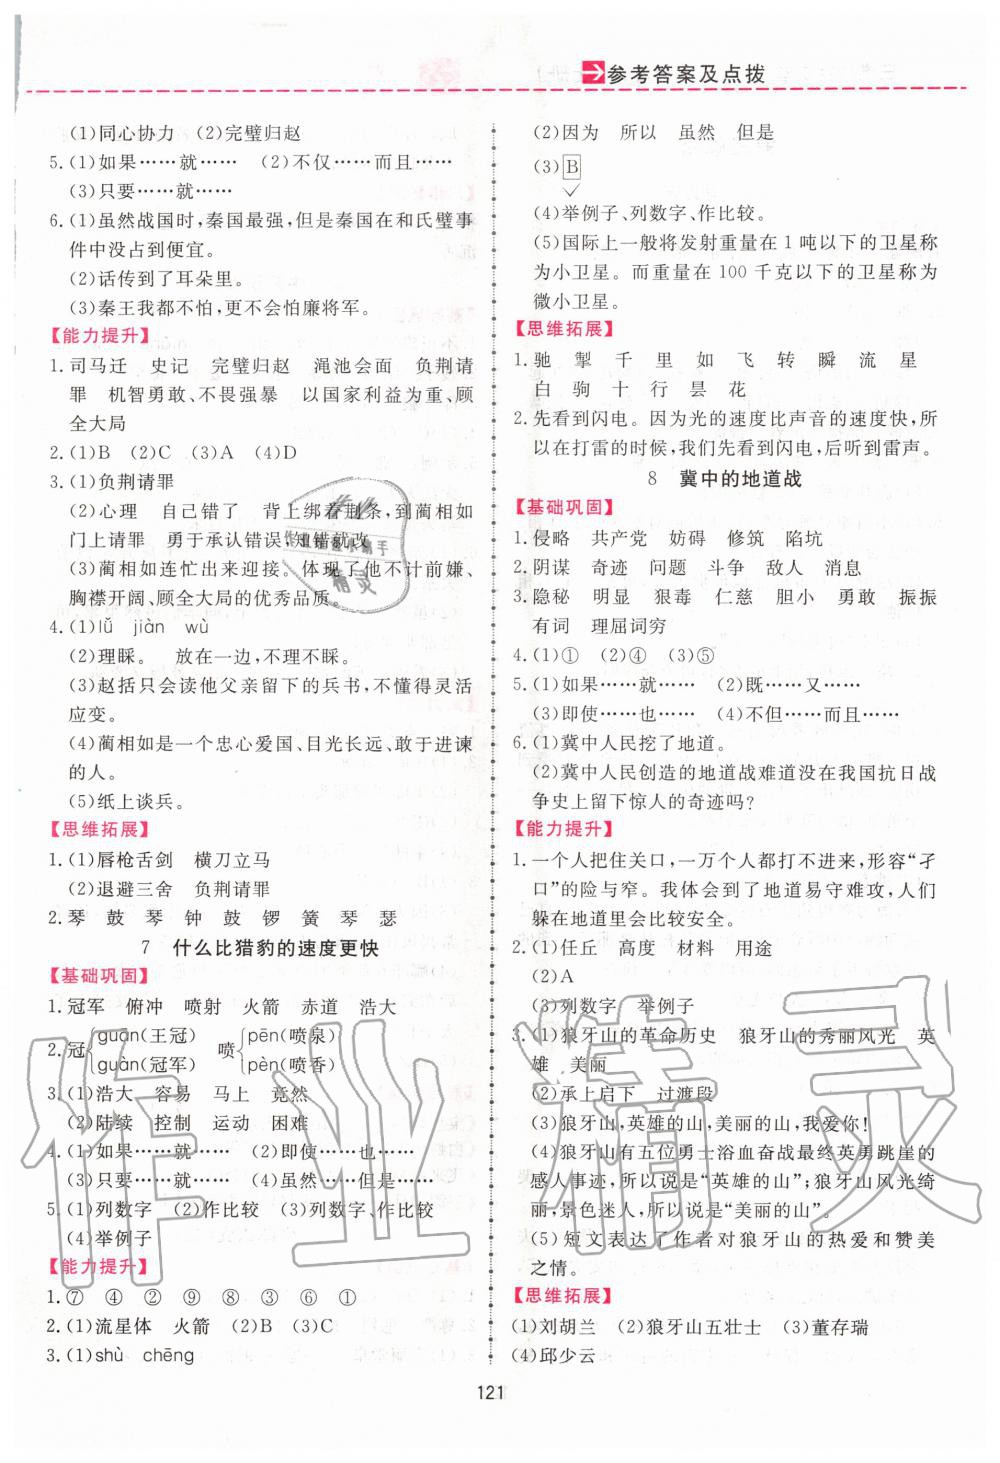 参考答案及点拨
(1)同心协力 (2)完璧归赵
5.(1)如果……就…… (2)不仅……而且……
(3)只要……就……
6.(1)虽然战国时,秦国最强,但是秦国在和氏璧事
件中没占到便宜。
(2)话传到了耳朵里。
(3)秦王我都不怕,更不会怕廉将军。
【能力提升】
1.司马迁 史记 完璧归赵 渑池会面 负荆请
罪 机智勇敢、不畏强暴 以国家利益为重、顾
全大局
2.(1)B (2)C (3)A (4)D
3.(1)负荆请罪
(2)心理 自己错了 背上绑着荆条,到蔺相如
门上请罪 勇于承认错误,知错就改
(3)蔺相如连忙出来迎接。体现了他不计前嫌、
胸襟开阔、顾全大局的优秀品质。
4.(1)lǚ jiàn wù
(2)理睬。 放在一边,不理不睬。
(3)赵括只会读他父亲留下的兵书,不懂得灵活
应变。
(4)蔺相如是一个忠心爱国、目光长远、敢于进谏
的人。
(5)纸上谈兵。
【思维拓展】
1.(1)唇枪舌剑 横刀立马
(2)退避三舍 负荆请罪
2.琴 鼓 琴 钟 鼓 锣 簧 琴 瑟
7 什么比猎豹的速度更快
【基础巩固】
1.冠军 俯冲 喷射 火箭 赤道 浩大
2.冠{guān(王冠) guàn(冠军) 喷{pēn(喷泉) pèn(喷香)
3.(1)浩大 容易 马上 竟然
(2)陆续 控制 运动 困难
4.(1)如果……就…… (2)即使……也……
(3)只要……就…… (4)虽然……但是……
5.(1)列数字 (2)作比较 (3)列数字、作比较
(4)举例子
【能力提升】
1.⑦ ④ ② ⑨ ⑧ ③ ⑥ ①
2.(1)流星体 火箭 (2)B (3)C
3.(1)shù chēng
(2)因为 所以 虽然 但是
(3)B✓
(4)举例子、列数字、作比较。
(5)国际上一般将发射重量在 1 吨以下的卫星称
为小卫星。而重量在 100 千克以下的卫星称为
微小卫星。
【思维拓展】
1.驰 掣 千 里 如 飞 转 瞬 流 星
白 驹 十 行 昙 花
2.先看到闪电。因为光的速度比声音的速度快,所
以在打雷的时候,我们先看到闪电,后听到雷声。
8 冀中的地道战
【基础巩固】
1.侵略 共产党 妨碍 修筑 陷坑
2.阴谋 奇迹 问题 斗争 敌人 消息
3.隐秘 明显 狠毒 仁慈 胆小 勇敢 振振
有词 理屈词穷
4.(1)① (2)④ (3)⑤
5.(1)如果……就…… (2)既……又……
(3)即使……也…… (4)不但……而且……
6.(1)冀中人民挖了地道。
(2)冀中人民创造的地道战难道没在我国抗日战
争史上留下惊人的奇迹吗?
【能力提升】
1.一个人把住关口,一万个人都打不进来,形容“孑
口”的险与窄。我体会到了地道易守难攻,人们
躲在地道里会比较安全。
2.(1)任丘 高度 材料 用途
(2)A
(3)列数字 举例子
3.(1)狼牙山的革命历史 狼牙山的秀丽风光 英
雄 美丽
(2)承上启下 过渡段
(3)狼牙山,英雄的山,美丽的山,我爱你!
(4)狼牙山有五位勇士浴血奋战最终英勇跳崖的
感人事迹,所以说是“英雄的山”;狼牙山风光绮
丽,景色迷人,所以说是“美丽的山”。
(5)短文表达了作者对狼牙山的热爱和赞美
之情。
【思维拓展】
(1)刘胡兰 (2)狼牙山五壮士 (3)董存瑞
(4)邱少云
121
作业精灵